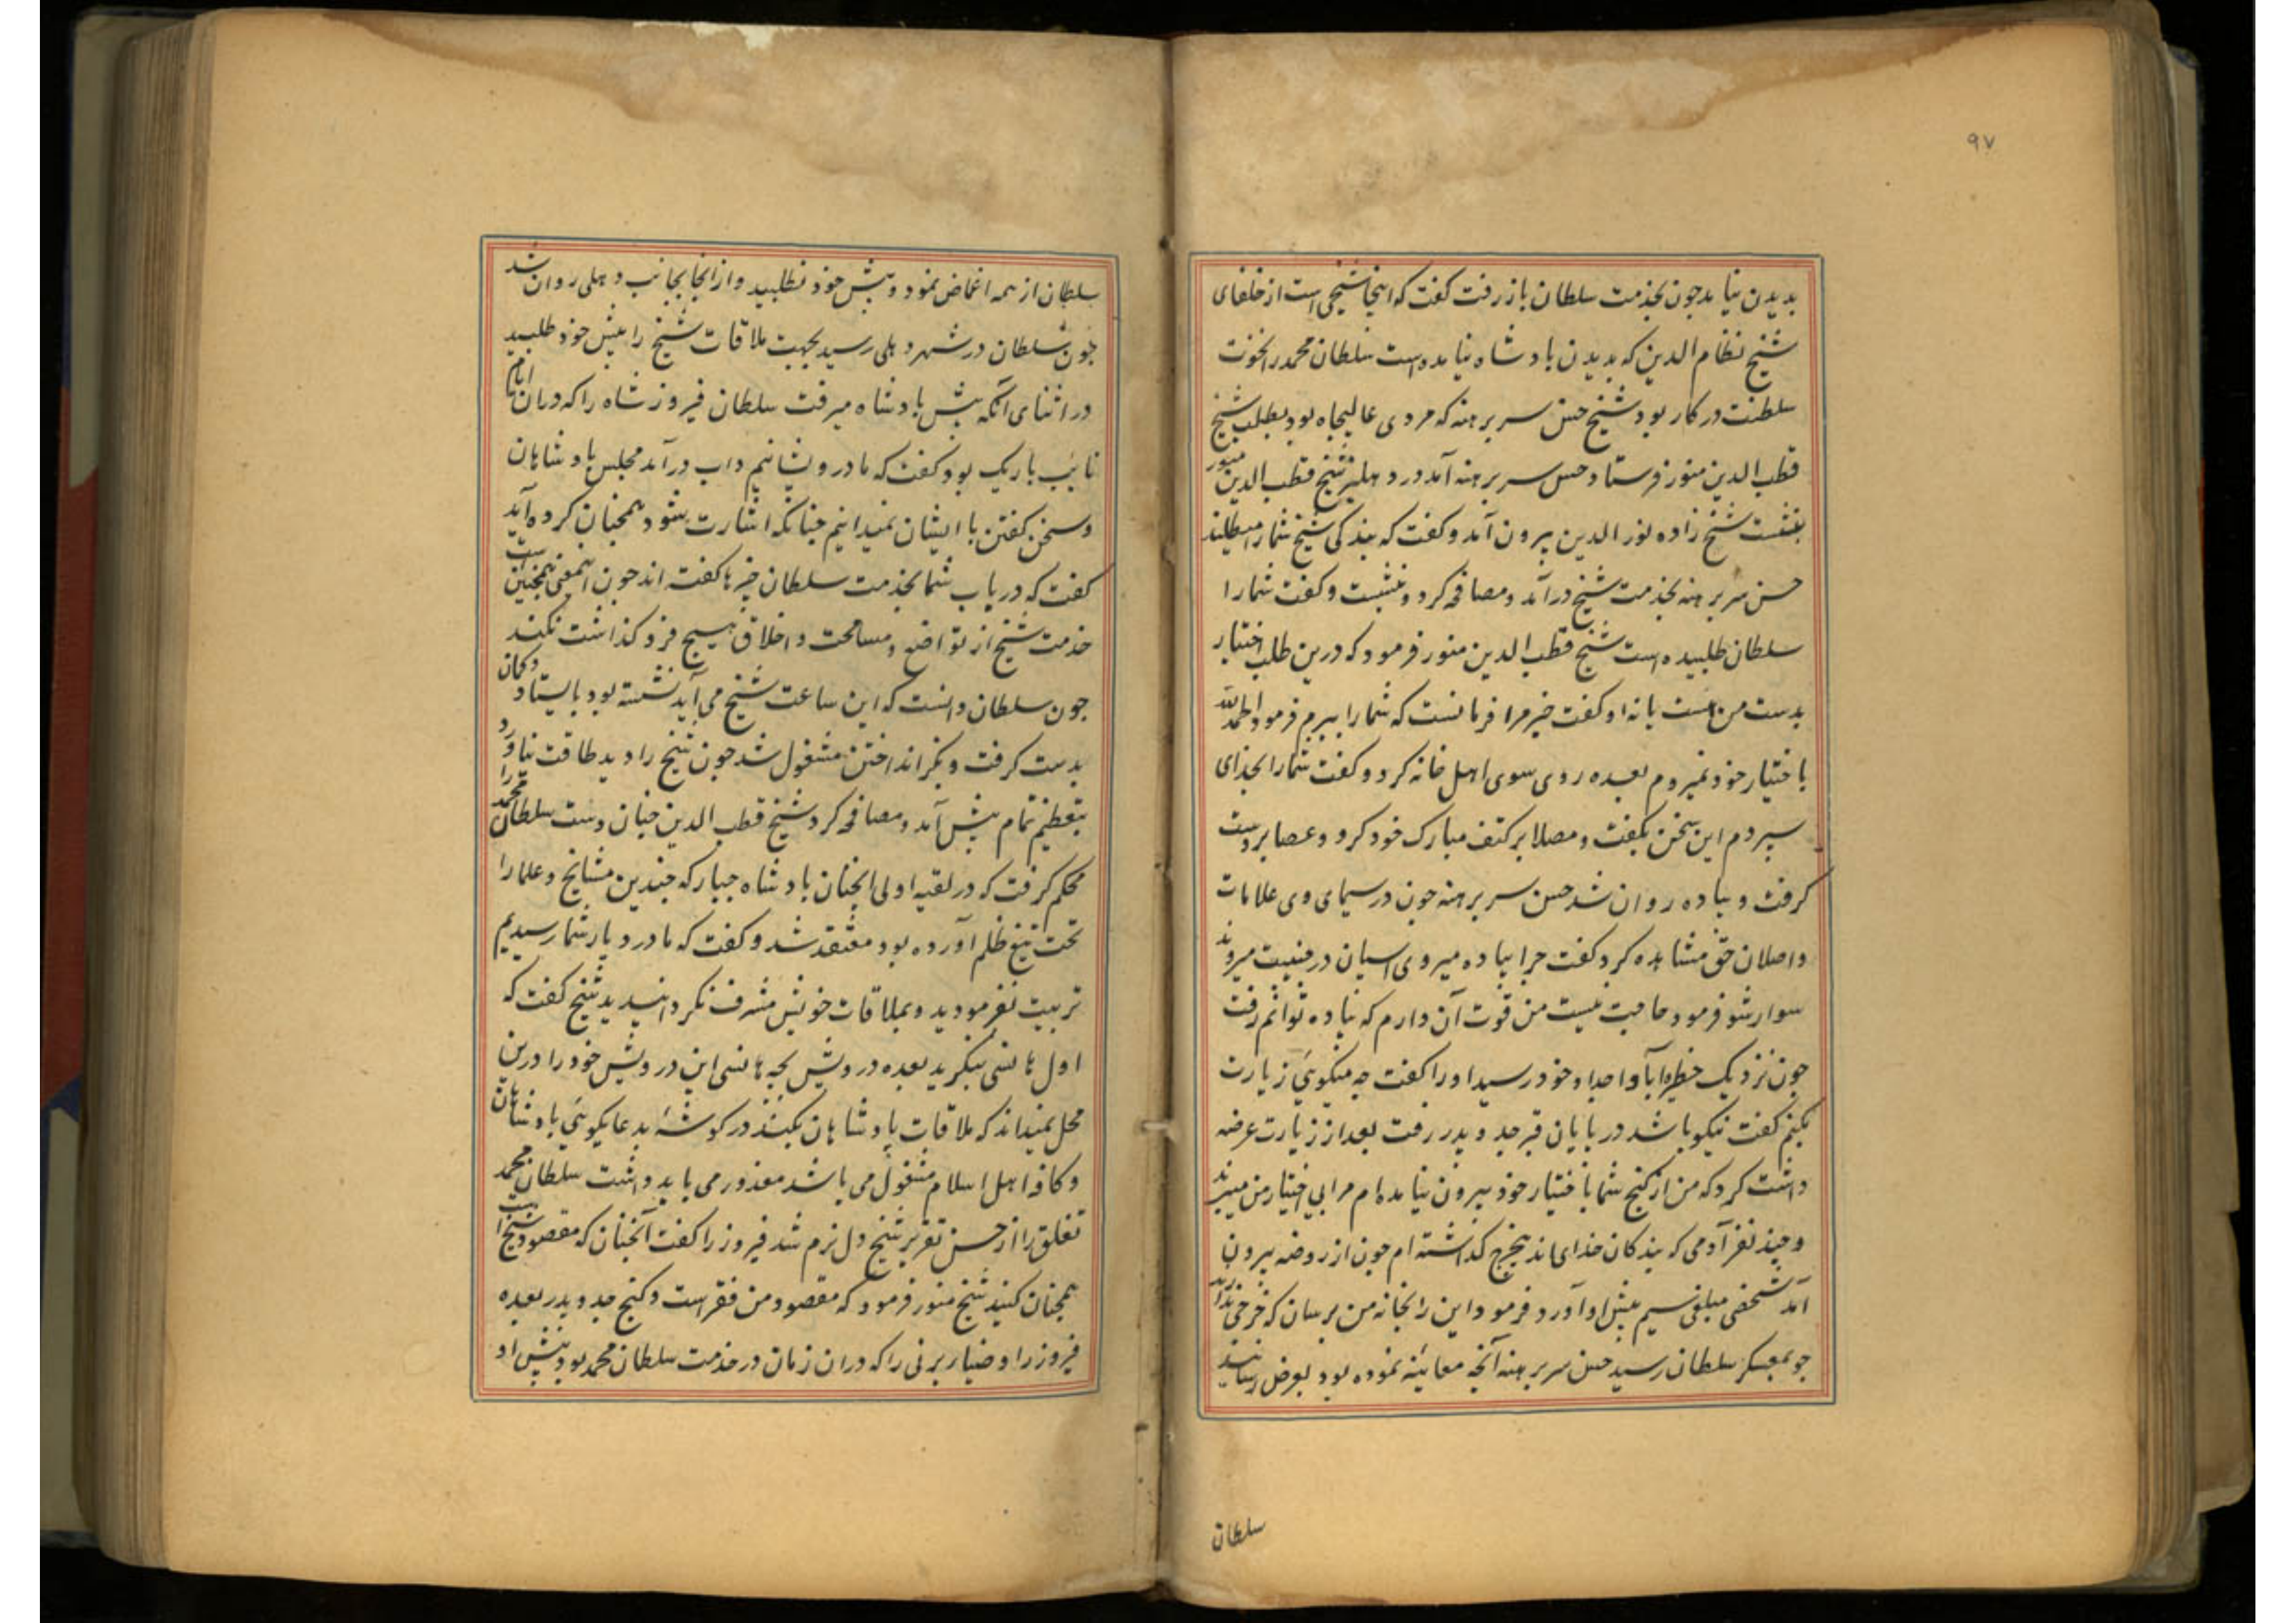 ۹۷
بدیدن نیامد جون بخدمت سلطان باز رفت کفت که اینجا شیخی است از خلفای
شیخ نظام الدین که بدیدن بادشاه نیامده است سلطان محمد را نخوت
سلطنت در کار بود شیخ حسن سر برهنه که مردی عالیجاه بود بطلب شیخ
قطب الدین منور فرستاد حسن سر برهنه آمد در دهلیز شیخ قطب الدین منور
بنشست شیخ زاده نور الدین بیرون آمد و کفت که بندکی شیخ شما را میطلبند
حسن سر برهنه بخدمت شیخ درآمد و مصافحه کرد و بنشست و کفت شما را
سلطان طلبیده است شیخ قطب الدین منور فرمود که درین طلب اختیار
بدست من هست یا نه او کفت خیر مرا فرمانست که شما را ببرم فرمود الحمد لله
باختیار خود نمیروم بعده روی سوی اهل خانه کرد و کفت شما را بخدای
سپردم این سخن بکفت و مصلا بر کتف مبارک خود کرد و عصا بر دست
کرفت و پیاده روان شد حسن سر برهنه جون در سیمای وی علامات
واصلان حق مشاهده کرد کفت جرا پیاده میروی اسپان در جنیبت میروند
سوار شو فرمود حاجت نیست من قوت آن دارم که پیاده توانم رفت
جون نزدیک حظیره آبا و اجداد خود رسید او را کفت چه میکوئی زیارت
بکنم کفت نیکو باشد در پایان قبر جد و پدر رفت بعد از زیارت عرضه
داشت کرد که من از کنج شما باختیار خود بیرون نیامده ام مرا بی اختیار من میبرند
و جند نفر آدمی که بندکان خدای اند بیخرج کذاشته ام جون از روضه بیرون
آمد شخصی مبلغی سیم پیش او آورد فرمود این را بخانه من برسان که خرجی ندارند
جو بمعسکر سلطان رسید حسن سر برهنه آنجه معاینه نموده بود بعرض رسانید
سلطان
سلطان از همه اغماض نمود و پیش خود نطلبید و از انجا بجانب دهلی روان شد
جون سلطان در شهر دهلی رسید بجهت ملاقات شیخ را پیش خود طلبید
در اثنای آنکه پیش بادشاه میرفت سلطان فیروز شاه را که دران ایام
نائب باربک بود کفت که ما درویشانیم داب درآمد مجلس بادشاهان
و سخن کفتن با ایشان نمیدانیم جنانکه اشارت شود همجنان کرده آید
کفت که در باب شما بخدمت سلطان جیزها کفته اند جون اینمعنی همجنین است
خدمت شیخ از تواضع و مسامحت و اخلاق هیج فروکذاشت نکند
جون سلطان دانست که این ساعت شیخ می آید نشسته بود بایستاد و کمان
بدست کرفت و بکز انداختن مشغول شد جون شیخ را دید طاقت نیاورد
بتعظیم تمام پیش آمد و مصافحه کرد شیخ قطب الدین جنان دست سلطان محمد را
محکم کرفت که در لقیه اولی انجنان بادشاه جبار که جندین مشایخ و علما را
تحت تیغ ظلم آورده بود معتقد شد و کفت که ما در دیار شما رسیدیم
تربیت نفرمودید و بملاقات خویش مشرف نکردانیدید شیخ کفت که
اول هانسی بنکرید بعده درویش بجه هانسی این درویش خود را درین
محل نمیداند که ملاقات بادشاهان بکند در کوشه بدعا کوئی بادشاهان
و کافه اهل اسلام مشغول می باشد معذور می باید داشت سلطان محمد
تغلق را از حسن تقریر شیخ دل نرم شد فیروز را کفت آنجنان که مقصود شیخ است
همجنان کنید شیخ منور فرمود که مقصود من فقر است و کنج جد و پدر بعده
فیروز را و ضیاء برنی را که دران زمان در خدمت سلطان محمد بود پیش او